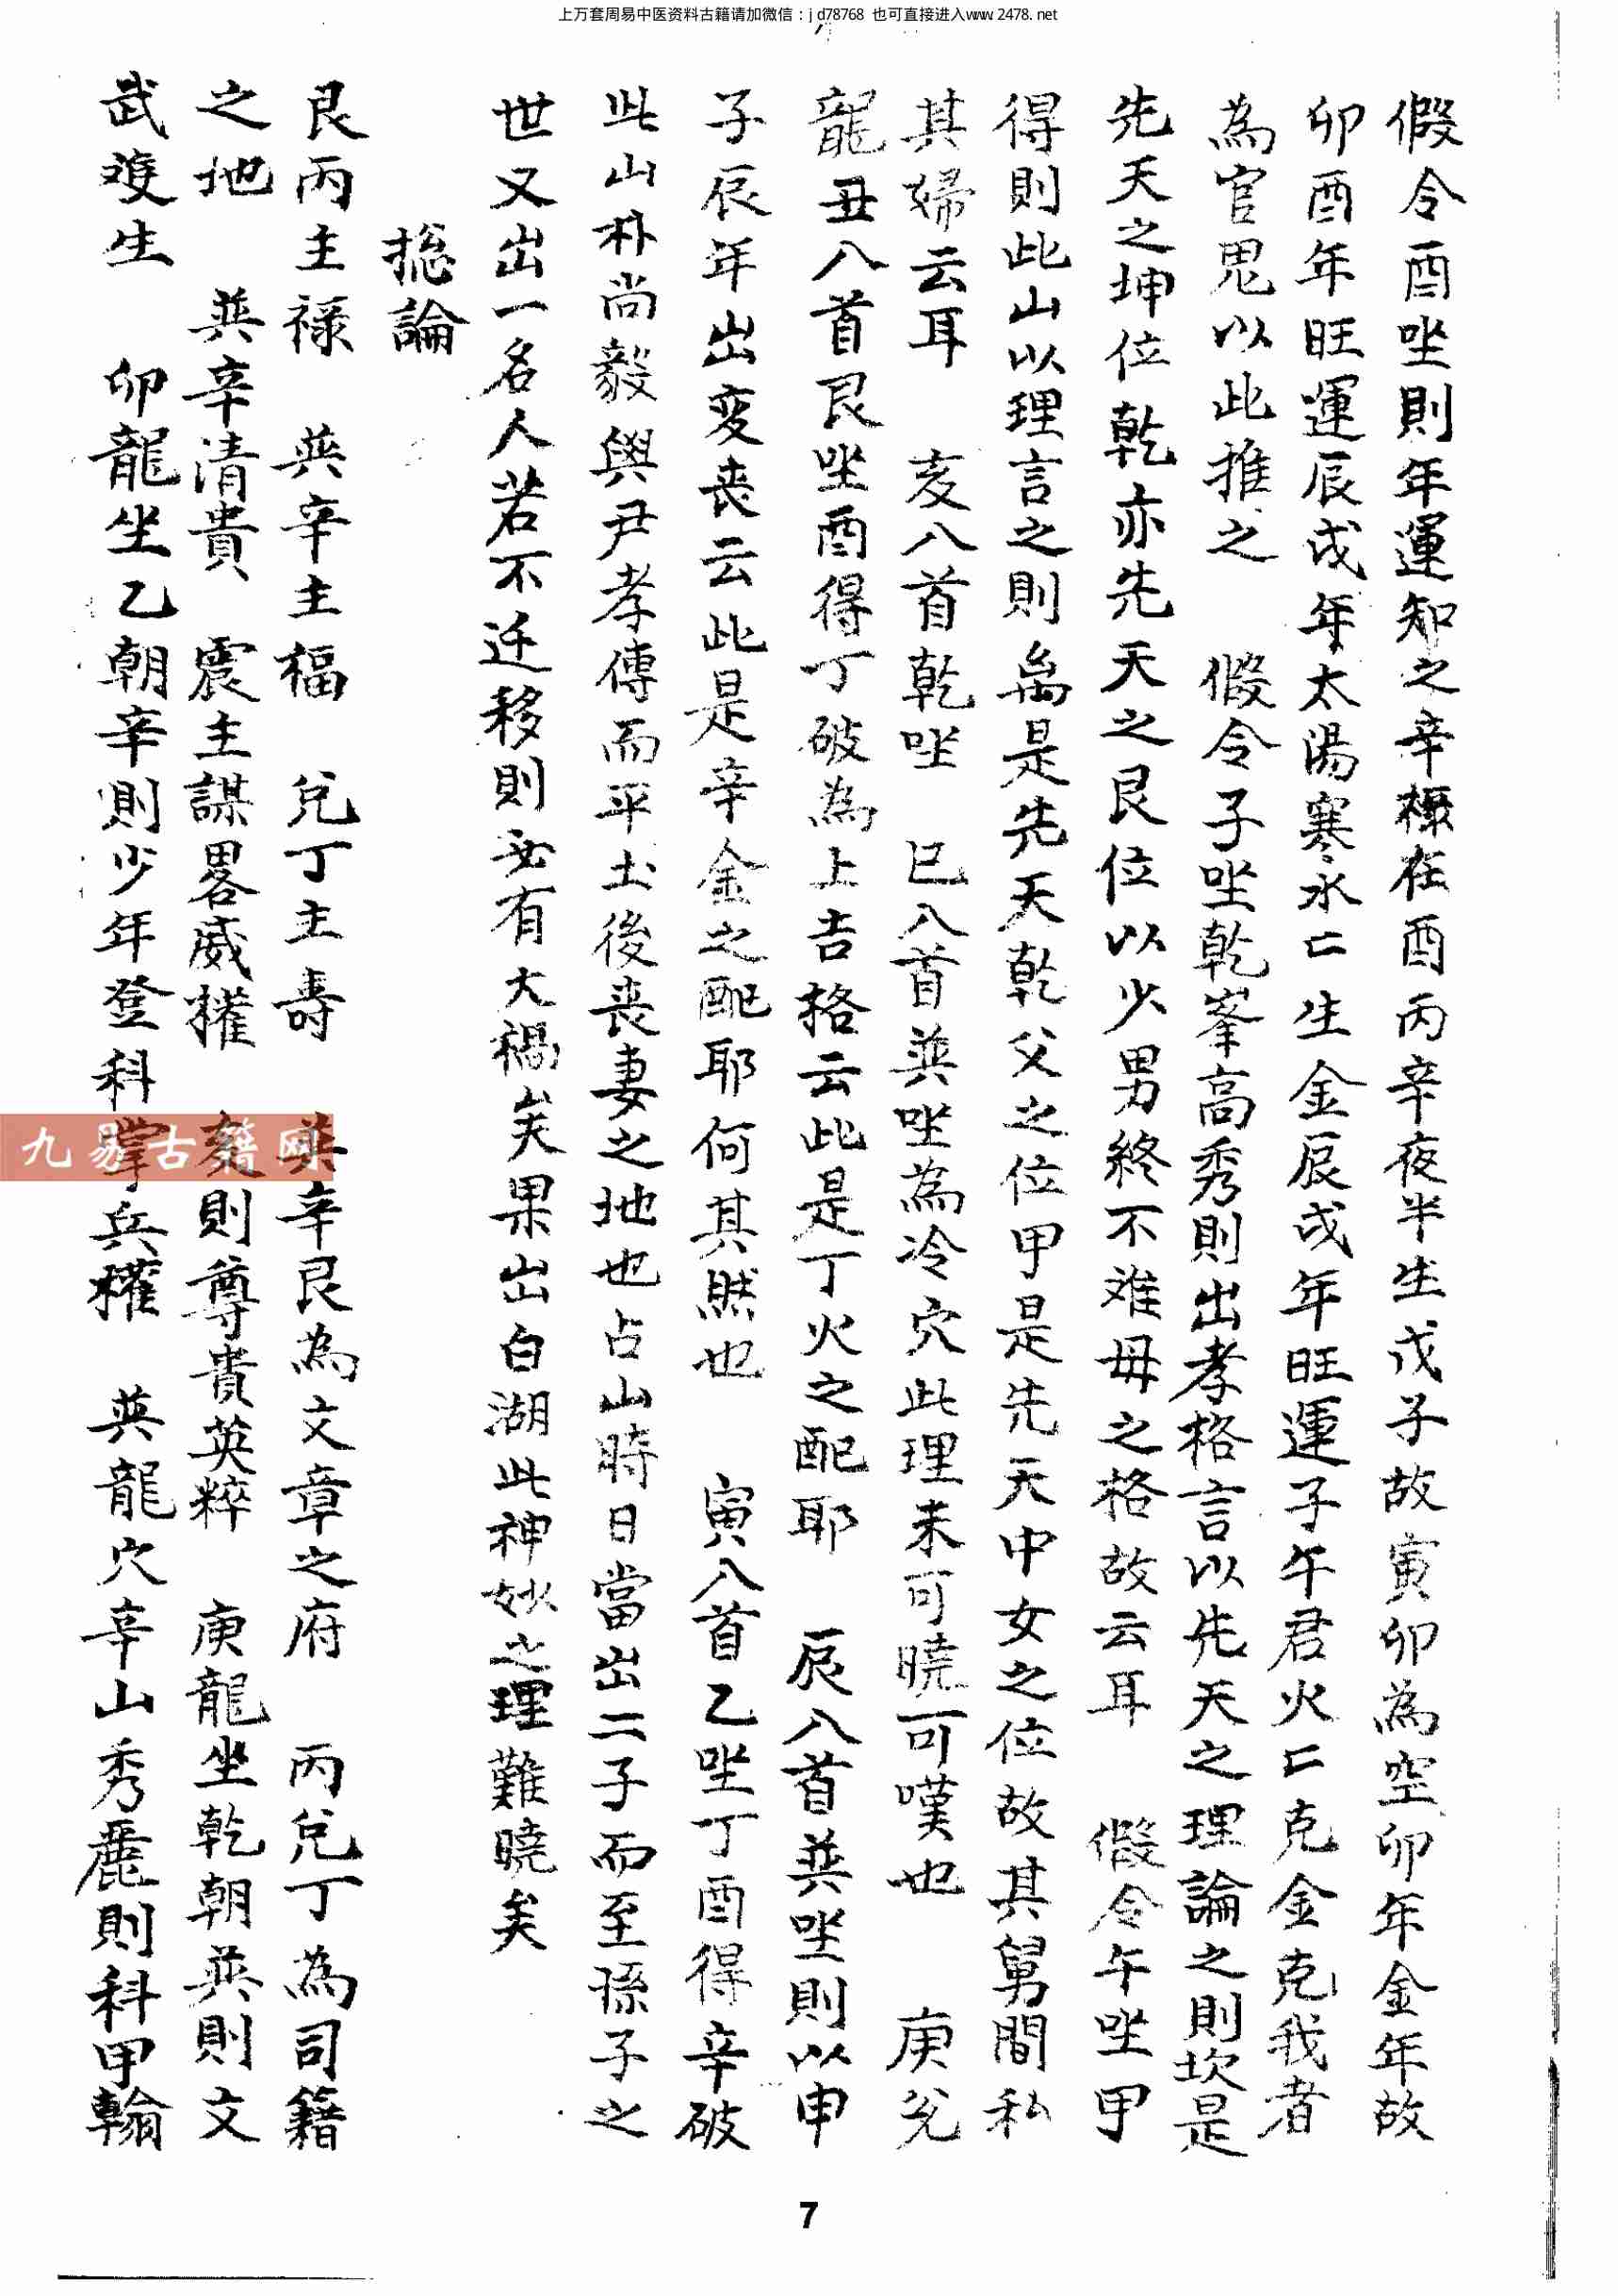 上万套周易中医资料古籍请加微信：jd78768 也可直接进入www.2478.net
假令酉坐則年運知之辛樑在酉丙辛夜半生戊子故寅卯為空卯年金年故
卯酉年旺運辰戌年太陽寒水匕生金辰戌年旺運子午君火匕克金克我者
為官鬼以此推之　假令子坐乾峯高秀則出孝格言以先天之理論之則坎是
先天之坤位乾亦先天之艮位以少男終不难母之格故云耳　假令午坐甲
得則此山以理言之則离是先天乾父之位甲是先天中女之位故其舅間私
其婦云耳　亥八首乾坐　巳八首巽坐為冷穴此理未可曉可嘆也　庚兌
龍丑八首艮坐酉得丁破為上吉格云此是丁火之配耶　辰八首巽坐則以申
子辰年出变丧云此是辛金之配耶何其然也　寅八首乙坐丁酉得辛破
此山朴尚毅與尹孝傳而平土後丧妻之地也占山時日當出二子而至孫子之
世又出一名人若不迁移則必有大禍矣果出白湖此神妙之理難曉矣
捴論
艮丙主禄　巽辛主福　兌丁主壽　巽辛艮為文章之府　丙兌丁為司籍
之地　巽辛清貴　震主謀畧威權　則尊貴英粹　庚龍坐乾朝巽則文
武雙生　卯龍坐乙朝辛則少年登科掌兵權　巽龍穴辛山秀麗則科甲翰
九易古籍网
7